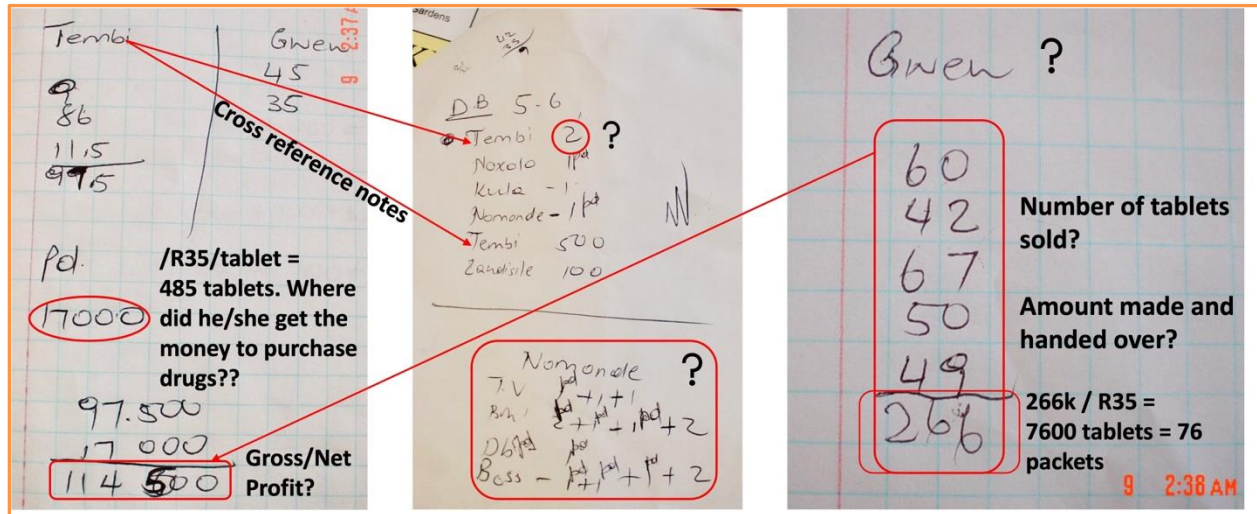 Tembi
Gwen
45
35
86
11,5
97,5
Cross reference notes
Pd.
17000
/R35/tablet =
485 tablets. Where
did he/she get the
money to purchase
drugs??
97.500
17 000
114 500
Gross/Net
Profit?
9 2:37 A
Gardens
K
D.B 5-6
Tembi 2 ?
Noxolo 1pd
Kula - 1
Nomonde - 1pd
Tembi 500
Zandisile 100
Nomonde ?
T.V
Boss -
Gwen ?
60
42
67
50
49
266
Number of tablets
sold?
Amount made and
handed over?
266k / R35 =
7600 tablets = 76
packets
9 2:38 AM